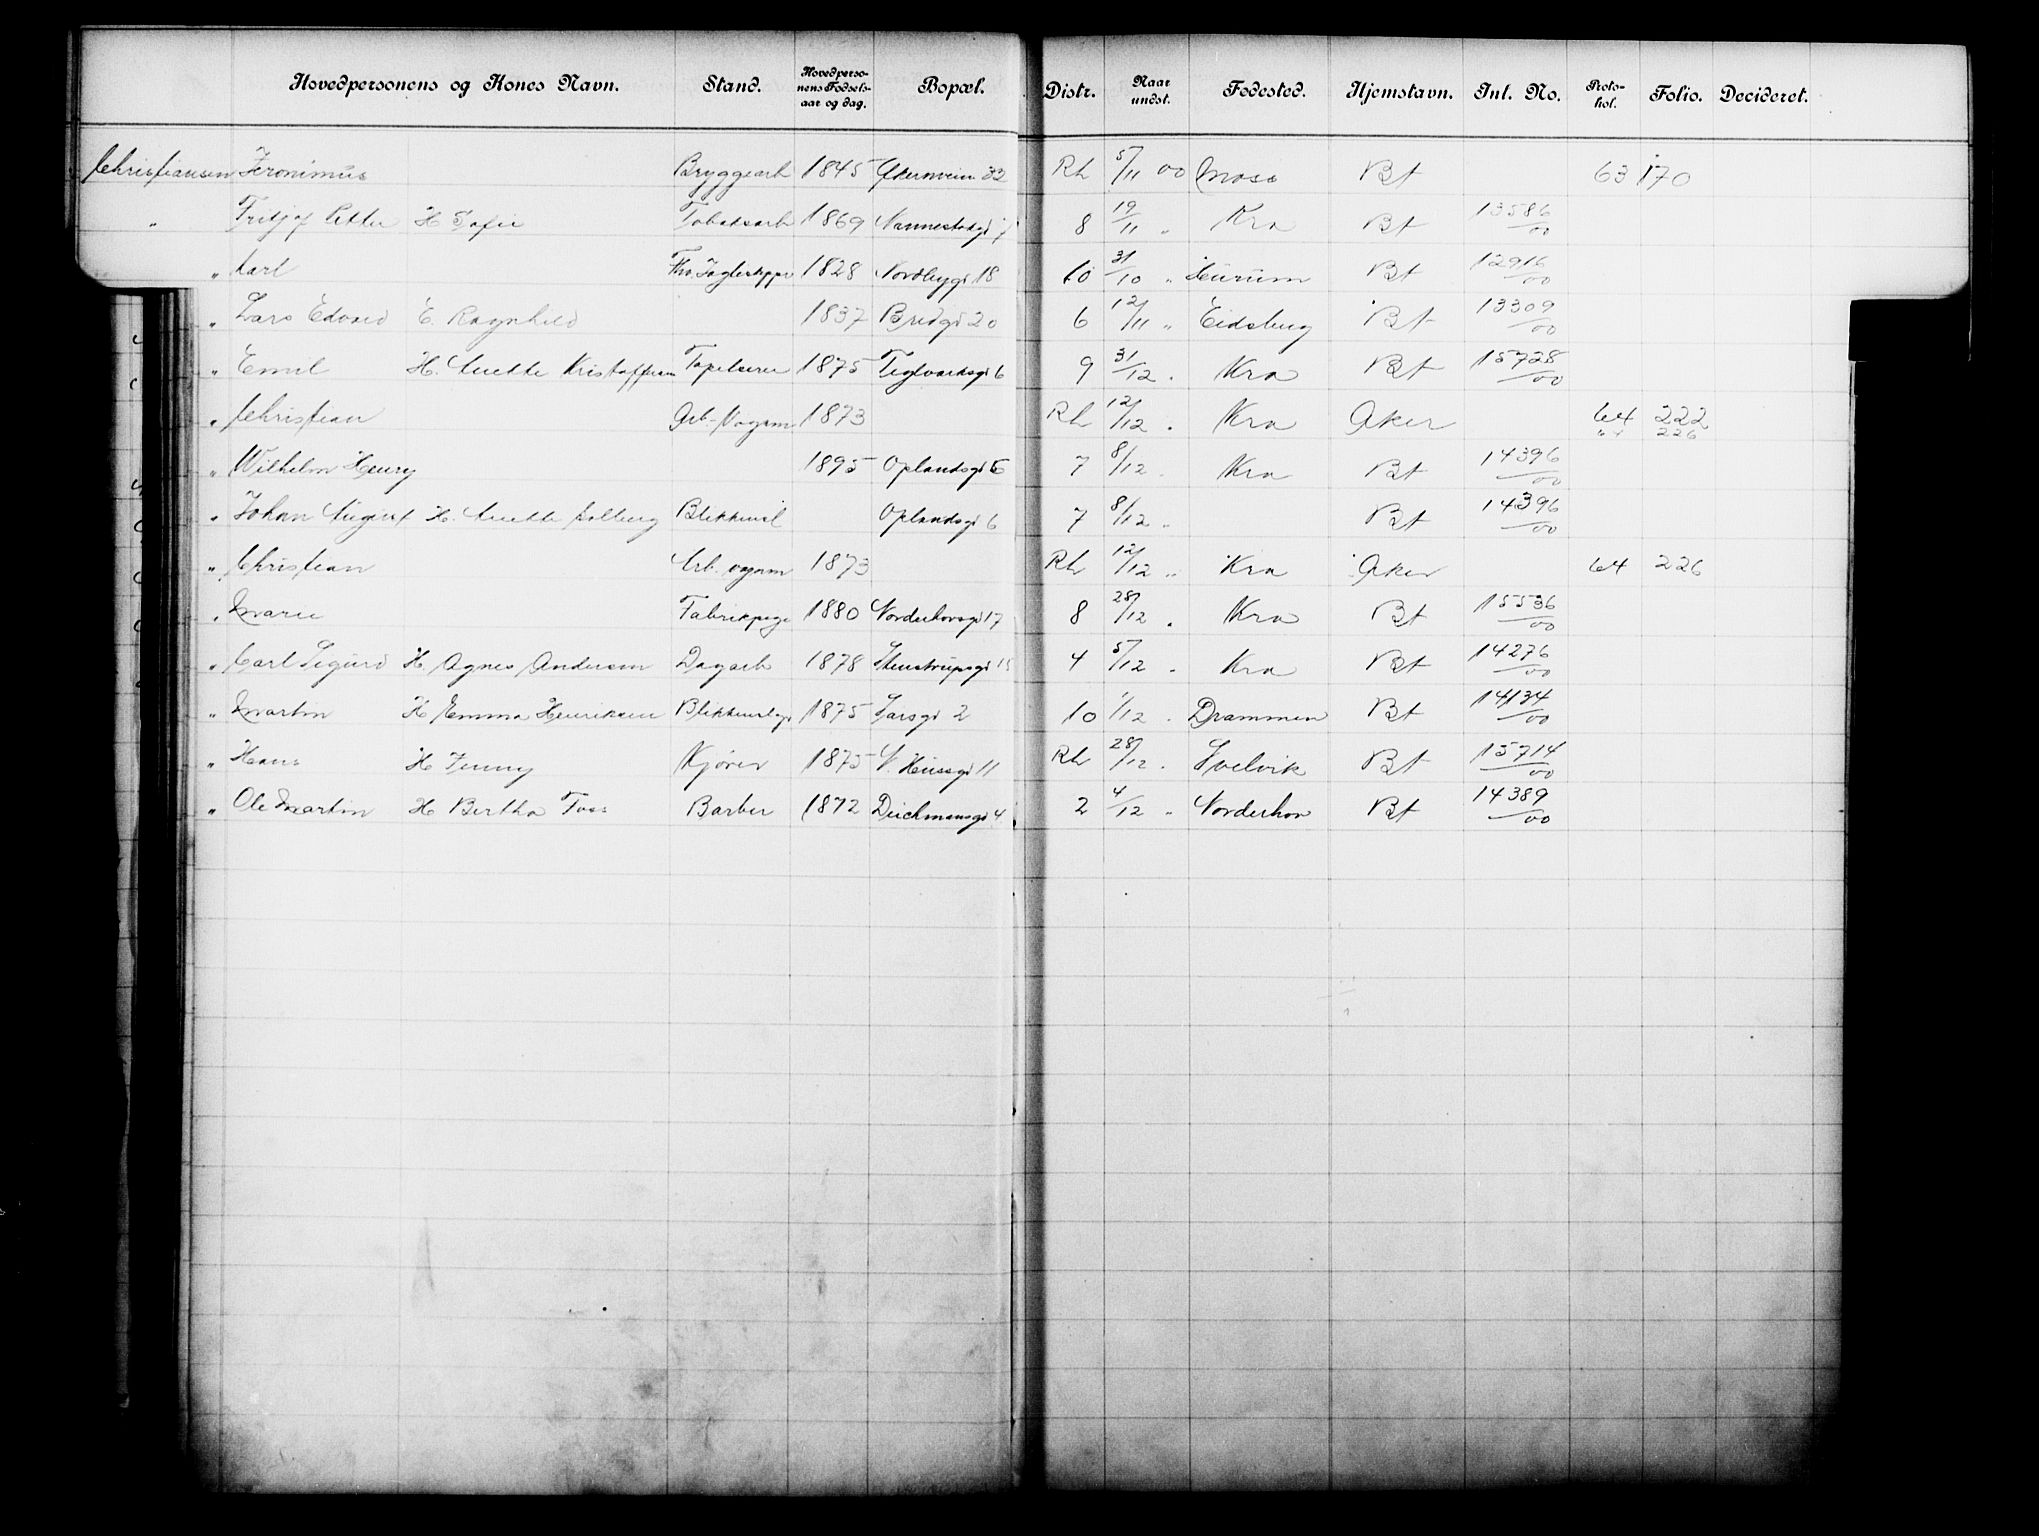 Hovedpersonens og Kones Navn. Stand. Hovedperso-nens Fødsels-aar og dag. Bopæl. Distr. Naar undst. Fødested. Hjemstavn. Inl. No. Proto-kol. Folio. Decideret.
Christiansen Jeronimus Bryggearb 1845 Akersveien 32 Rh 5/11 00 Moss Bt 63 170
" Fritjof Petter H Sofie Tobaksarb 1869 Nannestadgd 7 8 19/11 " Kra Bt 13586/00
" Karl 1828 Nordbygd 18 10 31/10 " Hurum Bt 12916/00
" Lars Edvard E. Ragnhild 1837 Bredgd 20 6 12/11 " Eidsberg Bt 13309/00
" Emil H. Anette Kristoffersen Tapetserer 1875 Teglverksgd 6 9 31/12 " Kra Bt 15728/00
" Christian Arb-Vognm 1873 Rh 12/12 " Kra Aker 64 222
64 226
" Wilhelm Henry 1895 Oplandsgd 6 7 8/12 " Kra Bt 14396/00
" Johan August H. Anette Solberg Blikkensl Oplandsgd 6 7 8/12 " Bt 14396/00
" Christian Arb. vognm 1873 Rh 12/12 " Kra Aker 64 226
" Marie Fabrikpige 1880 Norderhovsgd 17 8 28/12 " Kra Bt 15536/00
" Carl Sigurd H. Agnes Andersen Dagarb 1878 Stenstrupsgd 15 4 5/12 " Kra Bt 14276/00
" Martin H Emma Henriksen Blikkenslager 1875 Larsgd 2 10 1/12 " Drammen Bt 14134/00
" Hans H Jenny Kjører 1875 N. Hausgd 11 Rh 28/12 " Svelvik Bt 15714/00
" Ole Martin H Bertha Foss Barber 1872 Deichmansgd 4 2 4/12 " Norderhov Bt 14389/00